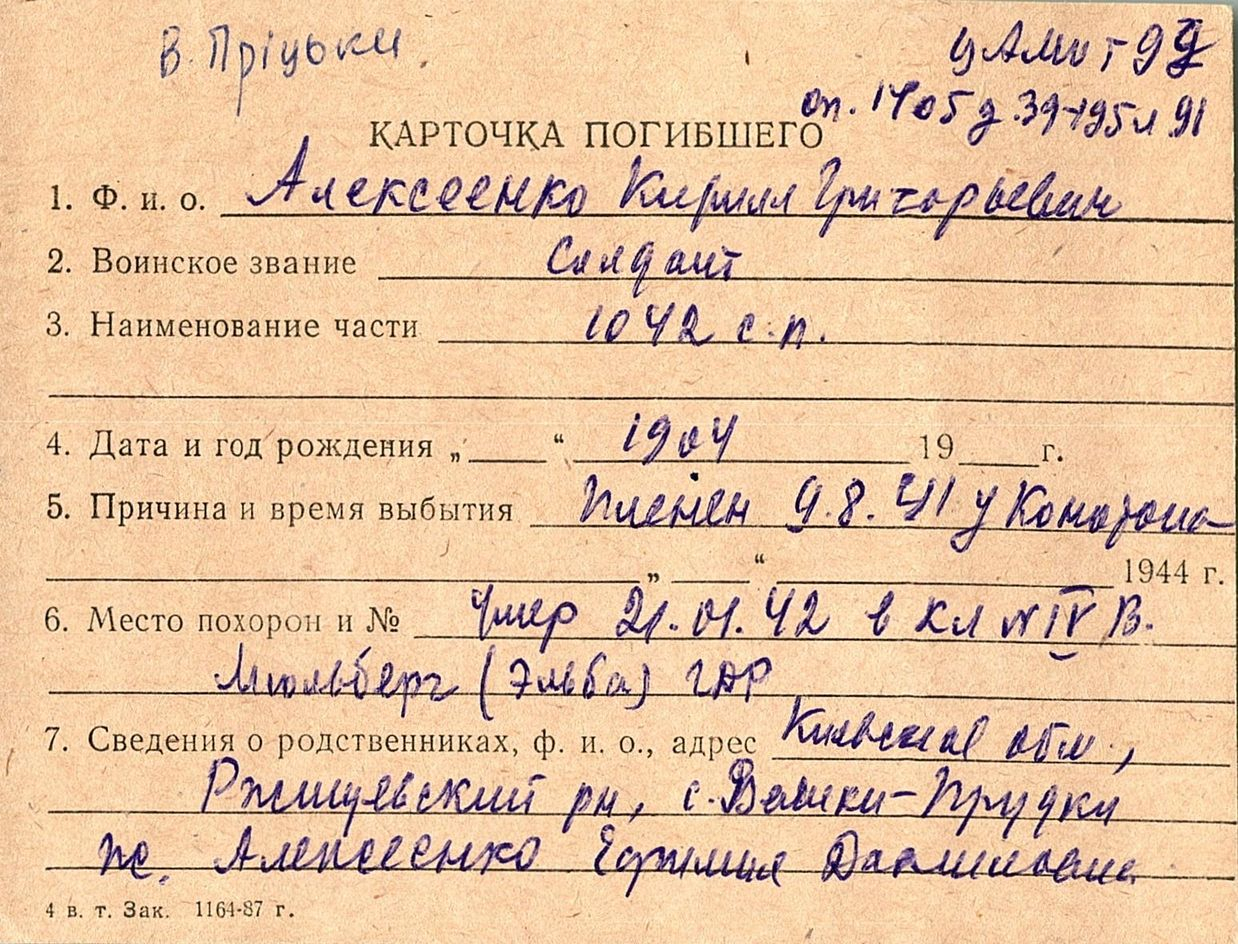 В. Пріцьки
оп. 1405 д. 39-195 л 91
КАРТОЧКА ПОГИБШЕГО
1. Ф. и. о. Алексеенко Кирилл Григорьевич
2. Воинское звание Солдат
3. Наименование части 1042 с.п.
4. Дата и год рождения „ “ 1904 19 г.
5. Причина и время выбытия Пленен 9.8.41 у Конотопа
„ “ 1944 г.
6. Место похорон и № Умер 21.01.42 в КЛ № IV В.
Мюльберг (Эльба) ГДР
7. Сведения о родственниках, ф. и. о., адрес Киевская обл.,
Ржищевский рн, с. Велики-Прудки
ж. Алексеенко Ефимия Даниловна
4 в. т. Зак. 1164-87 г.